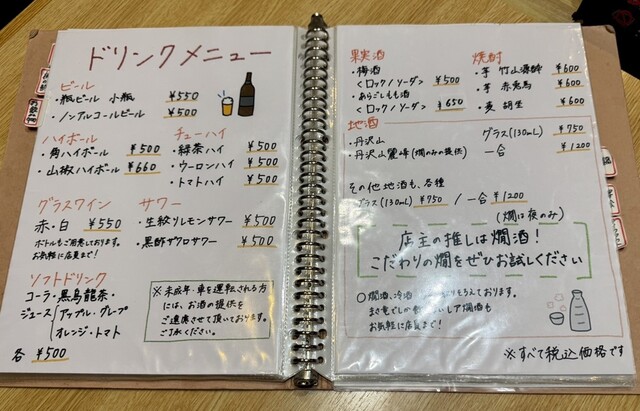 ドリンクメニュー
ビール
・瓶ビール 小瓶 ¥550
・ノンアルコールビール ¥500
ハイボール
・角ハイボール ¥500
・山椒ハイボール ¥660
チューハイ
・緑茶ハイ ¥500
・ウーロンハイ ¥500
・トマトハイ ¥500
グラスワイン
赤・白 ¥550
ボトルもご用意しております。
お気軽に店員まで!
サワー
・生絞りレモンサワー ¥500
・黒酢ザクロサワー ¥500
ソフトドリンク
コーラ・黒烏龍茶・
ジュース アップル・グレープ
オレンジ・トマト
各 ¥500
※未成年・車を運転される方
には、お酒の提供を
ご遠慮させて頂いております。
ご了承ください。
果実酒
・梅酒
<ロック/ソーダ> ¥500
・あらごしもも酒
<ロック/ソーダ> ¥650
焼酎
・芋 ¥600
・芋 赤兎馬 ¥600
・麦 ¥600
地酒
・丹沢山 グラス(130mL) ¥750
・丹沢山麗峰(燗のみの提供) 一合 ¥1200
その他地酒も、各種
グラス(130mL) ¥750 / 一合 ¥1200
(燗は夜のみ)
店主の推しは燗酒!
こだわりの燗をぜひお試しください
○燗酒、冷酒 そろえております。
お気軽に店員まで!
※すべて税込価格です